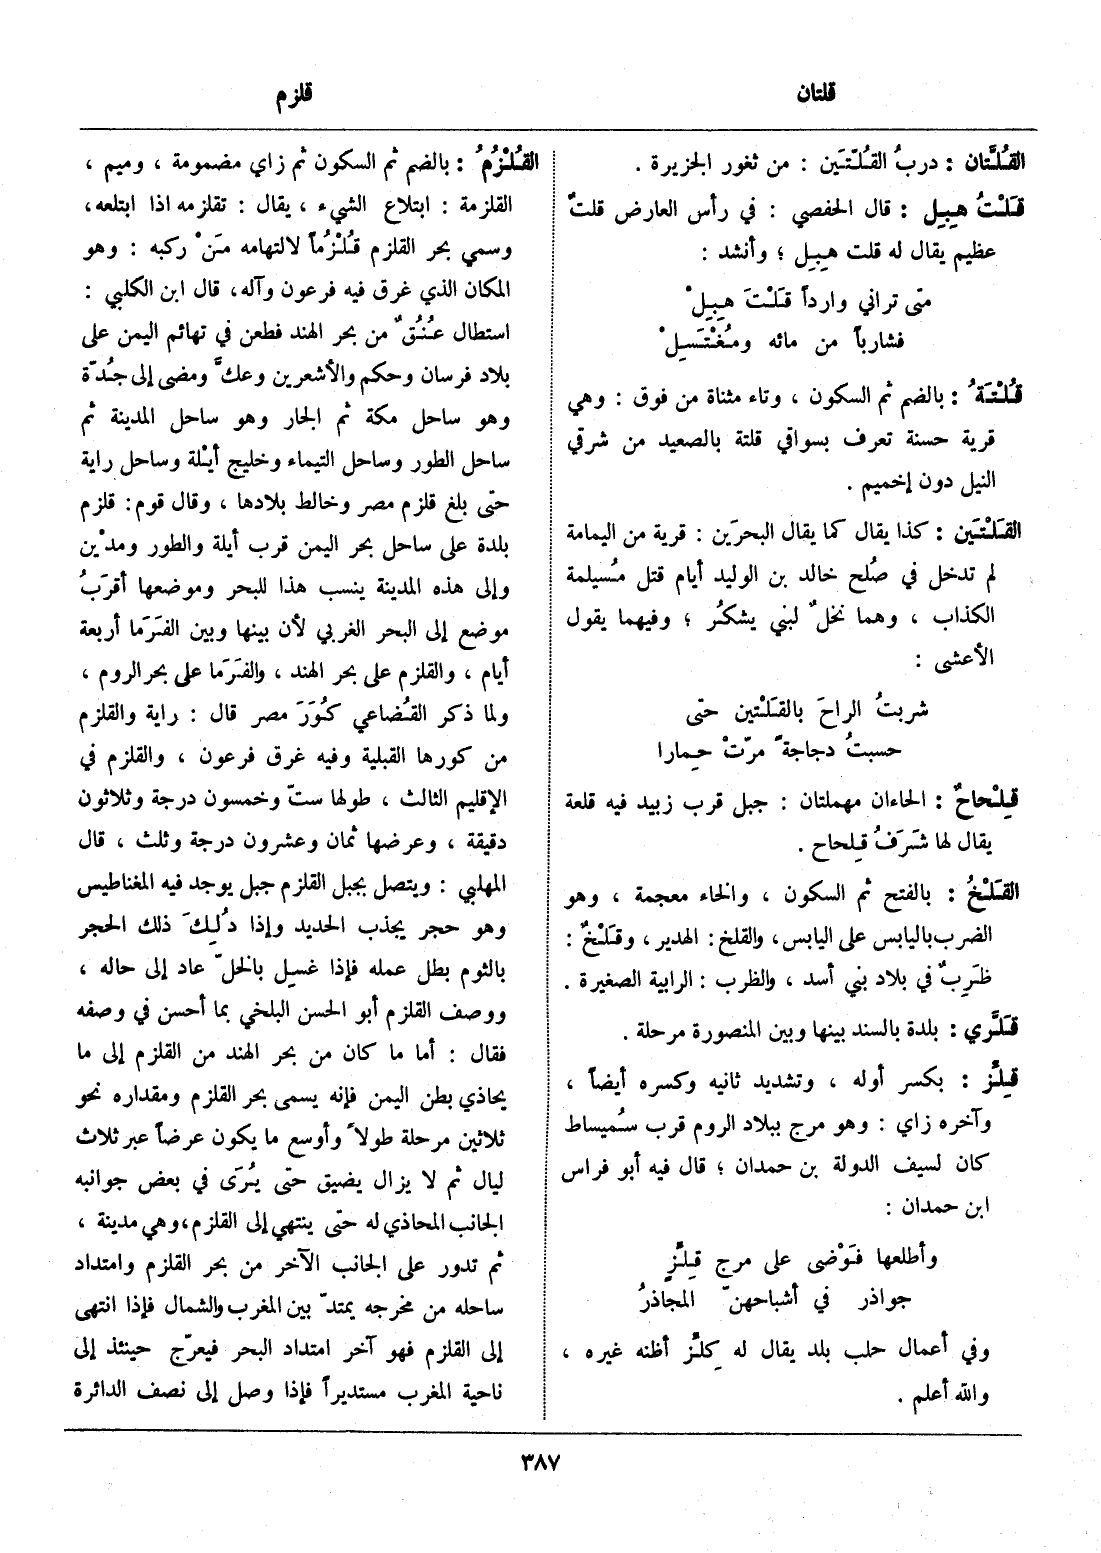 قلتان
قلزم
القُلَّتان : دربُ القُلّتَين : من ثغور الجزيرة .
قَلْتُ هِبِل : قال الحفصي : في رأس العارض قلتٌ
عظيم يقال له قلت هِبِل ؛ وأنشد :
متى تراني وارداً قَلْتَ هِبِلْ
فشارباً من مائه ومُغْتَسِلْ
قُلْتَةُ : بالضم ثم السكون ، وتاء مثناة من فوق : وهي
قرية حسنة تعرف بسواقي قلتة بالصعيد من شرقي
النيل دون إخميم .
القَلْتَين : كذا يقال كما يقال البحرَين : قرية من اليمامة
لم تدخل في صُلح خالد بن الوليد أيام قتل مُسيلمة
الكذاب ، وهما نخلٌ لبني يشكُر ؛ وفيهما يقول
الأعشى :
شربتُ الراحَ بالقَلْتين حتى
حسبتُ دجاجةً مرّتْ حِمارا
قِلْحاحٌ : الحاءان مهملتان : جبل قرب زبيد فيه قلعة
يقال لها شَرَفُ قِلحاح .
القَلْخُ : بالفتح ثم السكون ، والخاء معجمة ، وهو
الضرب باليابس على اليابس، والقلخ : الهدير ، وقَلْخٌ :
ظَرِبٌ في بلاد بني أسد ، والظرب : الرابية الصغيرة .
قَلَّري : بلدة بالسند بينها وبين المنصورة مرحلة .
قِلِّز : بكسر أوله ، وتشديد ثانيه وكسره أيضاً ،
وآخره زاي : وهو مرج ببلاد الروم قرب سُميساط
كان لسيف الدولة بن حمدان ؛ قال فيه أبو فراس
ابن حمدان :
وأطلعها فَوْضى على مرج قِلِّزٍ
جواذر في أشباحهنّ المجاذرُ
وفي أعمال حلب بلد يقال له كِلِّز أظنه غيره ،
والله أعلم .
القُلْزُمُ : بالضم ثم السكون ثم زاي مضمومة ، وميم ،
القلزمة : ابتلاع الشيء ، يقال : تقلزمه اذا ابتلعه،
وسمي بحر القلزم قُلْزُماً لالتهامه مَنْ ركبه : وهو
المكان الذي غرق فيه فرعون وآله، قال ابن الكلبي :
استطال عُنُقٌ من بحر الهند فطعن في تهائم اليمن على
بلاد فرسان وحكم والأشعرين وعكٍّ ومضى إلى جُدّة
وهو ساحل مكة ثم الجار وهو ساحل المدينة ثم
ساحل الطور وساحل التيماء وخليج أيْلة وساحل راية
حتى بلغ قلزم مصر وخالط بلادها ، وقال قوم: قلزم
بلدة على ساحل بحر اليمن قرب أيلة والطور ومدْين
وإلى هذه المدينة ينسب هذا للبحر وموضعها أقرَبُ
موضع إلى البحر الغربي لأن بينها وبين الفَرَما أربعة
أيام ، والقلزم على بحر الهند ، والفَرَما على بحر الروم ،
ولما ذكر القُضاعي كُوَرَ مصر قال : راية والقلزم
من كورها القبلية وفيه غرق فرعون ، والقلزم في
الإقليم الثالث ، طولها ستّ وخمسون درجة وثلاثون
دقيقة ، وعرضها ثمان وعشرون درجة وثلث ، قال
المهلبي : ويتصل بجبل القلزم جبل يوجد فيه المغناطيس
وهو حجر يجذب الحديد وإذا دُلِكَ ذلك الحجر
بالثوم بطل عمله فإذا غسل بالخلّ عاد إلى حاله ،
ووصف القلزم أبو الحسن البلخي بما أحسن في وصفه
فقال : أما ما كان من بحر الهند من القلزم إلى ما
يحاذي بطن اليمن فإنه يسمى بحر القلزم ومقداره نحو
ثلاثين مرحلة طولاً وأوسع ما يكون عرضاً عبر ثلاث
ليال ثم لا يزال يضيق حتى يُرَى في بعض جوانبه
الجانب المحاذي له حتى ينتهي إلى القلزم، وهي مدينة ،
ثم تدور على الجانب الآخر من بحر القلزم وامتداد
ساحله من مخرجه يمتدّ بين المغرب والشمال فإذا انتهى
إلى القلزم فهو آخر امتداد البحر فيعرّج حينئذ إلى
ناحية المغرب مستديراً فإذا وصل إلى نصف الدائرة
٣٨٧